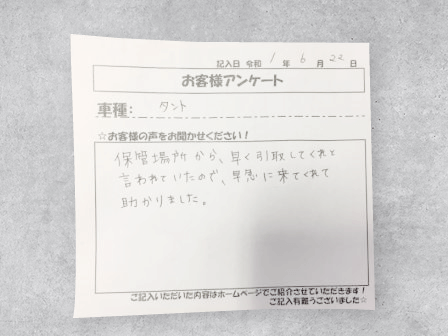 記入日 令和 1 年 6 月 22 日
お客様アンケート
車種: タント
☆お客様の声をお聞かせください!
保管場所から、早く引取してくれと
言われていたので、早急に来てくれて
助かりました。
ご記入いただいた内容はホームページでご紹介させていただきます!
ご記入有難うございました☆